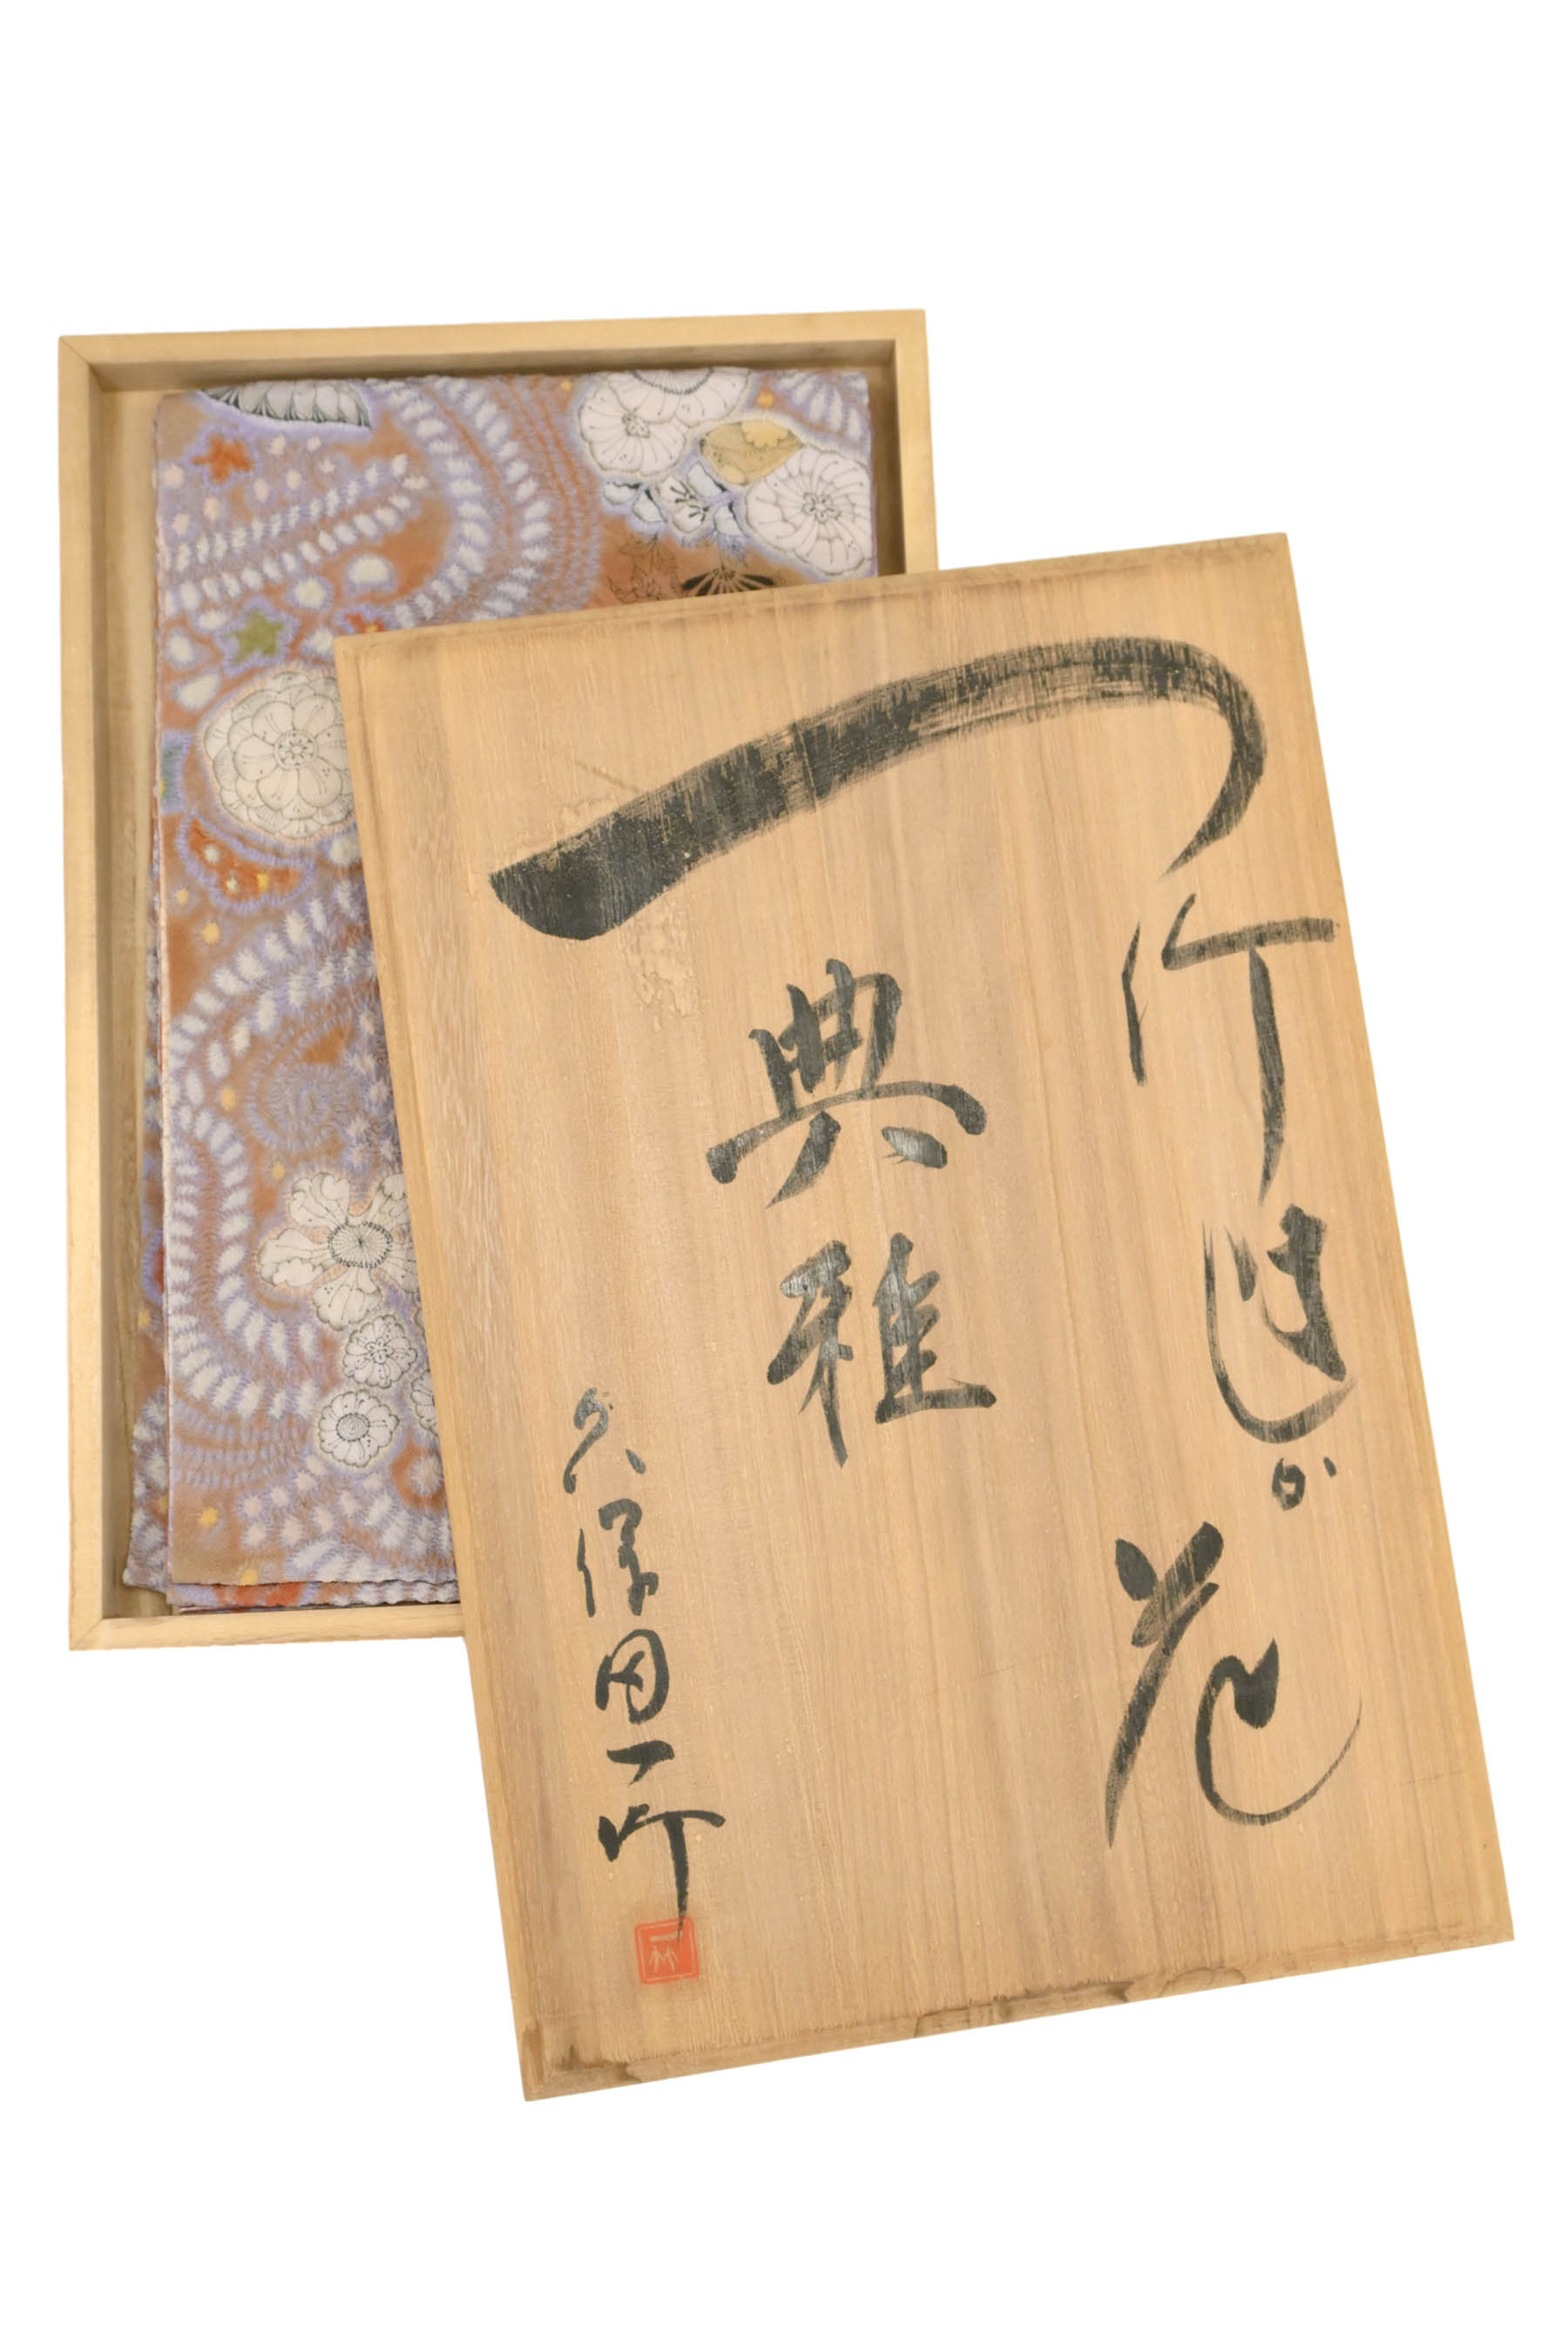 一竹辻が花
典雅
久保田一竹
一竹